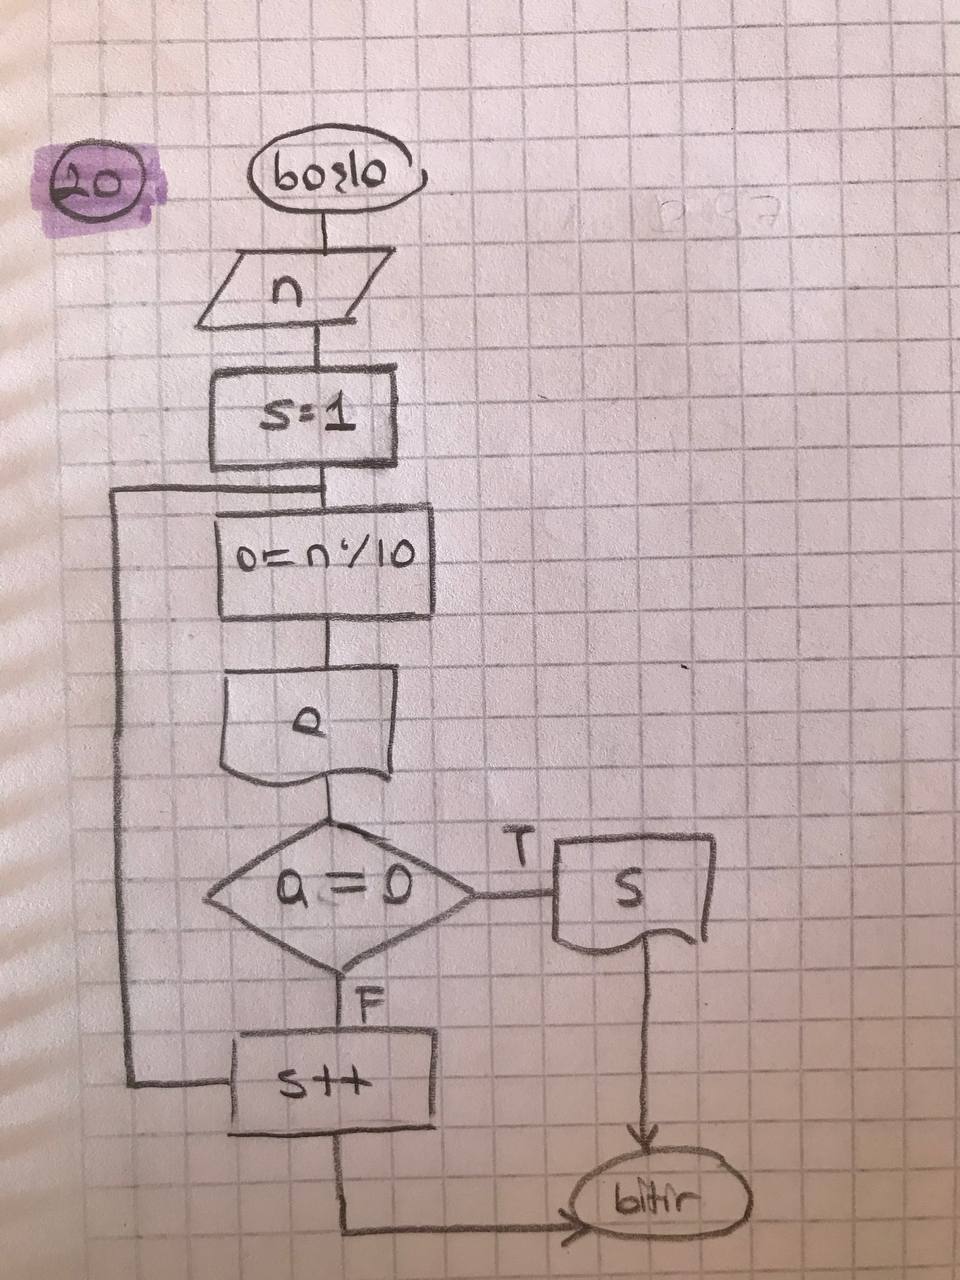 20
başla
n
s=1
a=n%10
a
a = 0
T
s
F
s++
bitir